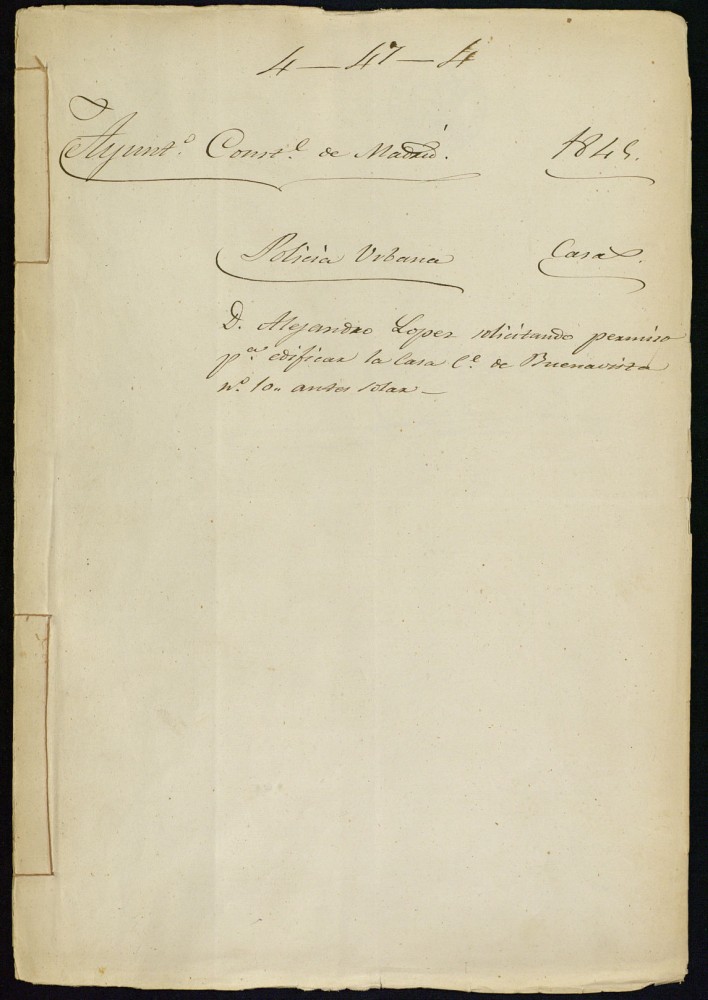 4-47-4
Ayunt.º Const.l de Madrid. 1845.
Policia Urbana Casas.
D. Alejandro Lopez solicitando permiso
p.ª edificar la Casa C.e de Buenavista
n.º 10,, antes solar —